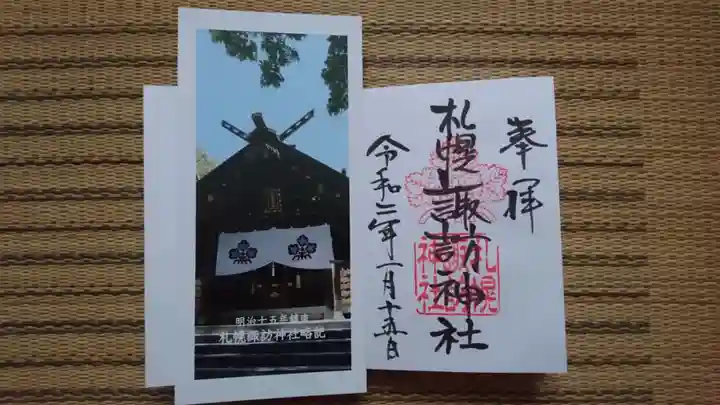 奉拝
札幌諏訪神社
令和二年一月十五日
札幌諏訪神社
明治十五年鎮座
札幌諏訪神社略記